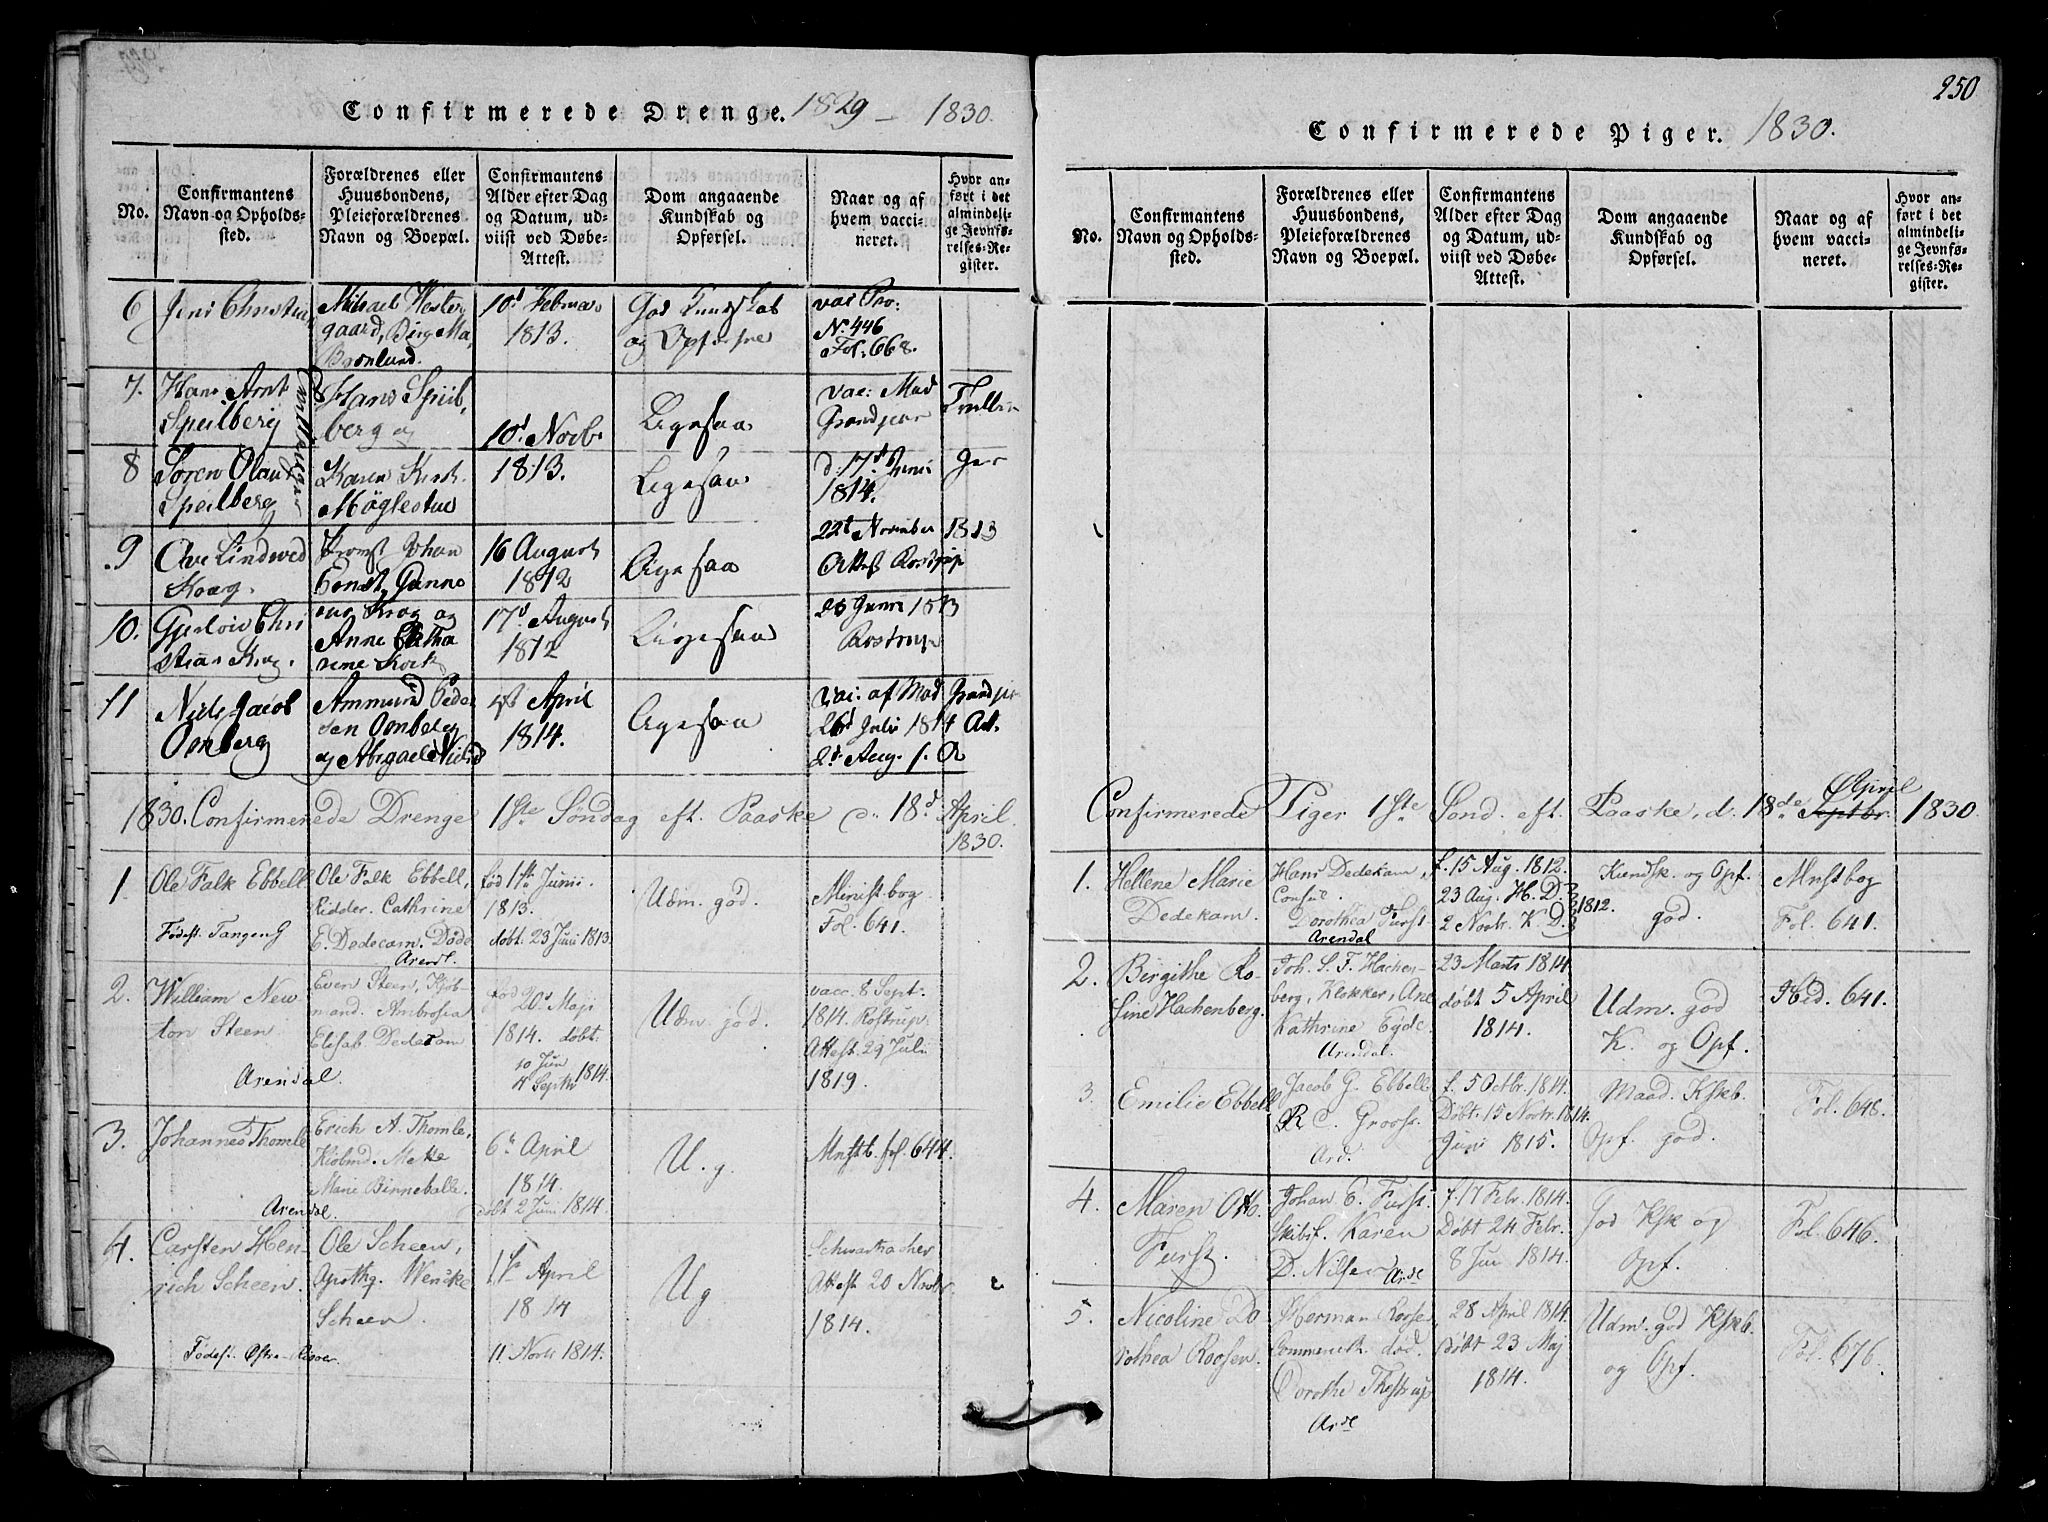 Confirmerede Drenge. 1829 – 1830.
No.
Confirmantens
Navn og Opholds-
sted.
Forældrenes eller
Huusbondens,
Pleieforældrenes
Navn og Boepæl.
Confirmantens
Alder efter Dag
og Datum, ud-
viist ved Døbe-
Attest.
Dom angaaende
Kundskab og
Opførsel.
Naar og af
hvem vacci-
neret.
Hvor an-
ført i det
almindeli-
ge Jevnfø-
relses-Re-
gister.
6
Jens Christian
Mikael Wester
gaard, Birge Ma,
Brønlund.
10d Februar
1813.
God Kundskab
og Opførsel
vac Pro:
No. 446
Fol: 668.
7.
Hans Arnt
Speilberg
Hans Speil,
berg og
10d Novb.
Ligesaa
vac: Mad
Grandjean
8
Søren Olaus
Speilberg
Karen Kirst.
Møglestue
1813.
Ligesaa
d. 17d Juni
1814.
9
Ove Lindwed
Krag.
Provst Johan
Ernst Gunne
16 August
1812
Ligesaa
22d November 1813
Attest Rostrup
10.
Gjerlov Chri
stian Krog.
rus Krog og
Anne Catha
rine Koch
17d August
1812
Ligesaa
25 Juni 1813
Rostrup
11
Niels Jacob
Omberg
Ammund Peder
sen Omberg
og Abigael Nielsd
1st April
1814.
Ligesaa
Vac: af Mad Grandjean
26d Juli 1814 At.
2d Aug. s. A
1830. Confirmerede Drenge 1ste Søndag eft. Paaske d. 18d April
1830.
1
Ole Falk Ebbell
Fødest. Tangen G
Ole Falk Ebbell,
Ridder. Cathrine
E. Dedecam. Døde
Arendl.
fød 1ste Junii.
1813.
døbt. 23 Juni 1813.
Udm. god.
Minist bog
Fol. 641.
2.
William New
ton Steen
Arendal
Even Steen, Kjøb-
mand. Ambrosia
Elisab. Dedekam
fød
20d Maji
1814. døbt.
10 Jun
4 Septbr 1814.
Udm. god.
vacc. 8 Sept.
1814. Rostrup.
Attest. 29 Juli
1819.
3.
Johannes Thomle
Arendal.
Erich A. Thomle,
Kiøbmd. Mette
Marie Binneballe.
6te April
1814.
døbt 2 Juni 1814.
U. g.
Mnstb. fol. 644.
4.
Carsten Hen-
rich Scheen.
Fødest. Østre-Risøer
Ole Scheen,
Apothq. Wencke
Scheen.
1ste April
1814
11 Novb 1814.
Ug
Schwartzacher
Attest 20 Novbr.
1814.
250
Confirmerede Piger. 1830.
No.
Confirmantens
Navn og Opholds-
sted.
Forældrenes eller
Huusbondens,
Pleieforældrenes
Navn og Boepæl.
Confirmantens
Alder efter Dag
og Datum, ud-
viist ved Døbe-
Attest.
Dom angaaende
Kundskab og
Opførsel.
Naar og af
hvem vacci-
neret.
Hvor an-
ført i det
almindeli-
ge Jevnfø-
relses-Re-
gister.
April
Confirmerede Piger 1ste Sønd. eft. Paaske, d. 18de Septbr. 1830
1.
Hellene Marie
Dedekam.
Hans Dedekam,
Consul.
Dorothea Furst
Arendal
f. 15 Aug. 1812.
23 Aug. H. D.
2 Novbr. K. D. 1812.
Kundsk. og Opf.
god.
Mnstbog
Fol. 641.
2.
Birgithe Ro-
sine Hachenberg.
Joh. S. F. Hachen-
berg, Klokker, Ane
Kathrine Eyde.
Arendal.
23 Marts 1814
døbt 5 April
1814.
Udm. god
K. og Opf.
Ibid. 641.
3.
Emilie Ebbell
Jacob G. Ebbell
R C. Grooss.
Ard.
f. 5 Octbr. 1814.
Døbt. 15 Novbr. 1814.
Juni 1815.
Maad. Kskb.
Opf. god.
Fol. 648.
4.
Maren Otto.
Furst.
Johan C. Furst.
Skibsf. Karen
D. Nilsen Ardl
f. 17 Febr. 1814.
Døbt 24 Febr.
8 Jun 1814.
God Ksk og
Opf.
Fol. 646.
5.
Nicoline Do
rothea Roosen.
Herman Roosen,
Commerick. død.
Dorothe Thestrup
Ardl
28 April 1814.
Døbt 23 Maj
1814.
Udm. god Kskb.
og Opf.
Fol. 676.